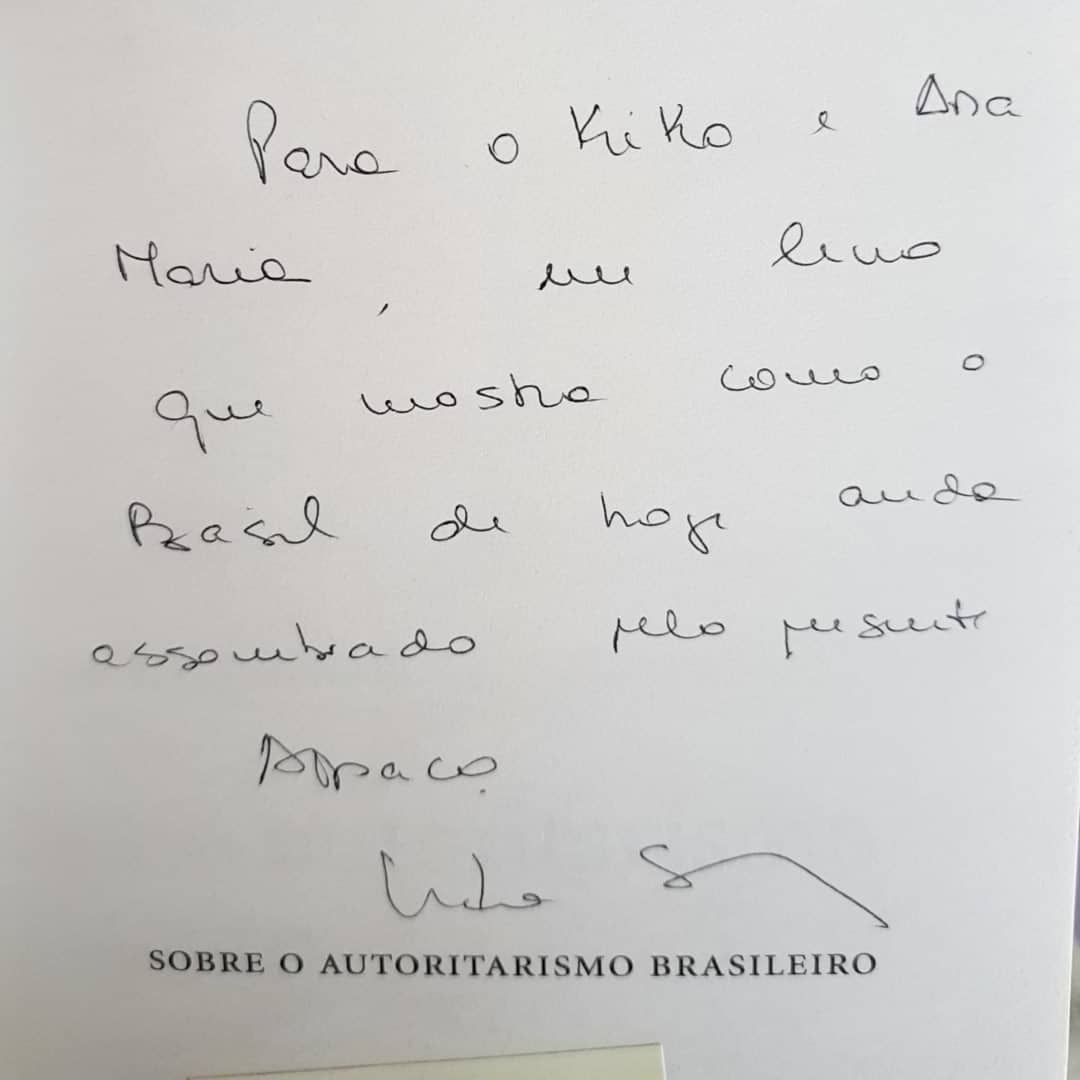 Para o Kiko e Ana
Maria, um livro
que mostra como o
Brasil de hoje anda
assombrado pelo presente
Abraço
SOBRE O AUTORITARISMO BRASILEIRO